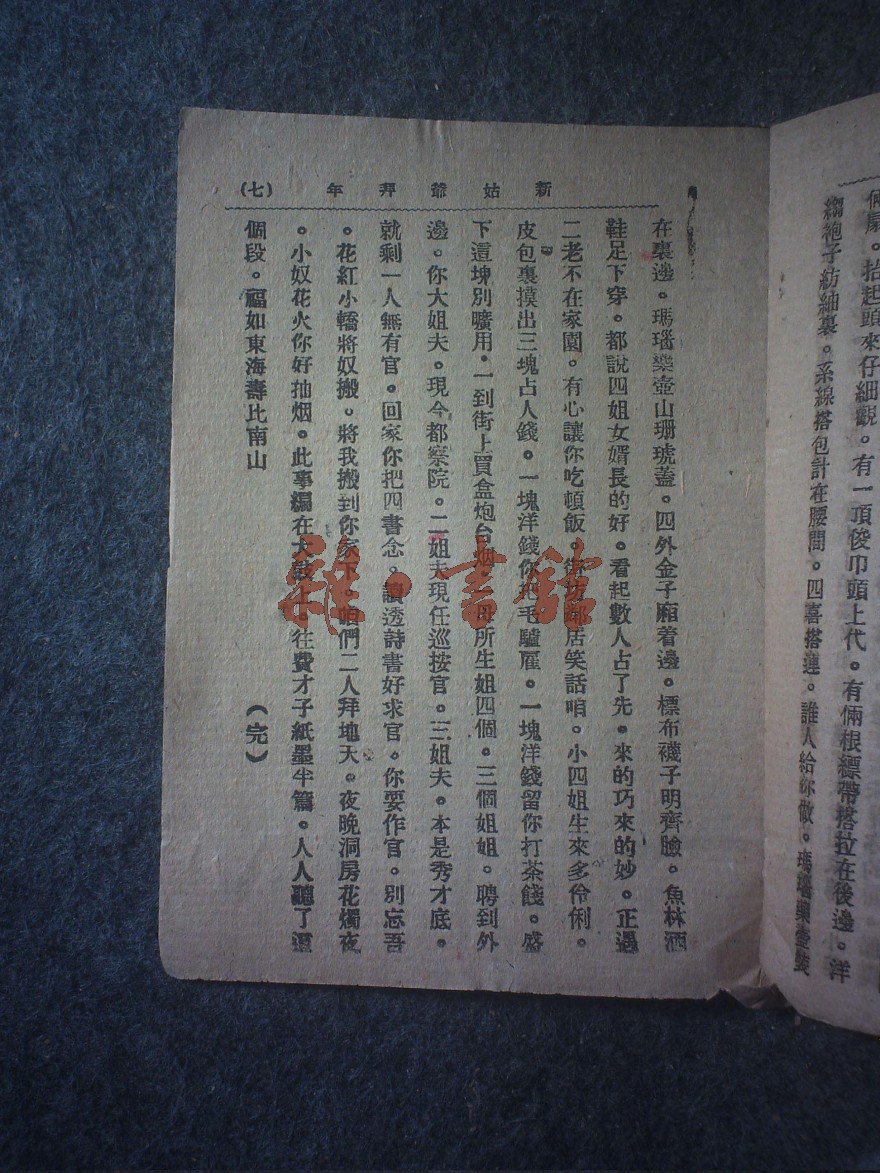 倆扇。抬起頭來仔細觀。有一頂俊巾頭上代。有倆根縹帶搭拉在後邊。洋
縐袍子紡紬裏。系線搭包計在腰間。四喜搭連。誰人給你做。瑪瑙樂壺裝
新姑爺拜年 (七)
在裏邊。瑪瑙樂壺山珊琥蓋。四外金子廂着邊。標布襪子明齊臉。魚林洒
鞋足下穿。都說四姐女婿長的好。看起數人占了先。來的巧來的妙。正遇
二老不在家園。有心讓你吃頓飯。街坊鄰居笑話咱。小四姐生來多伶俐。
皮包裏摸出三塊占人錢。一塊洋錢你把毛驢雇。一塊洋錢留你打茶餞。盛
下這塊別曠用。一到街上買盒炮台烟。一母所生姐四個。三個姐姐。聘到外
邊。你大姐夫。現今都察院。二姐夫現任巡按官。三姐夫。本是秀才底。
就剩一人無有官。回家你把四書念。讀透詩書好求官。你要作官。別忘吾
。花紅小轎將奴搬。將我搬到你家下。咱們二人拜地天。夜晚洞房花燭夜
。小奴花火你好抽烟。此事編在大鼓上。往費才子紙墨半篇。人人聽了這
個段。福如東海壽比南山
(完)
雜·書館